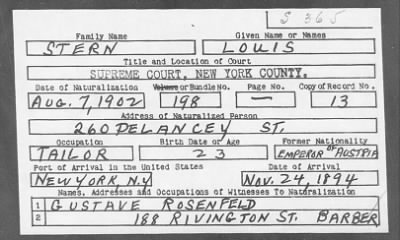 S 365
Family Name Given Name or Names
STERN LOUIS
Title and Location of Court
SUPREME COURT, NEW YORK COUNTY.
Date of Naturalization Volume or Bundle No. Page No. Copy of Record No.
AUG. 7, 1902 198 — 13
Address of Naturalized Person
260 DELANCEY ST.
Occupation Birth Date or Age Former Nationality
TAILOR 23 EMPEROR OF AUSTRIA
Port of Arrival in the United States Date of Arrival
NEW YORK, N.Y. NOV. 24, 1894
Names, Addresses and Occupations of Witnesses To Naturalization
1 GUSTAVE ROSENFELD
2 188 RIVINGTON ST. BARBER